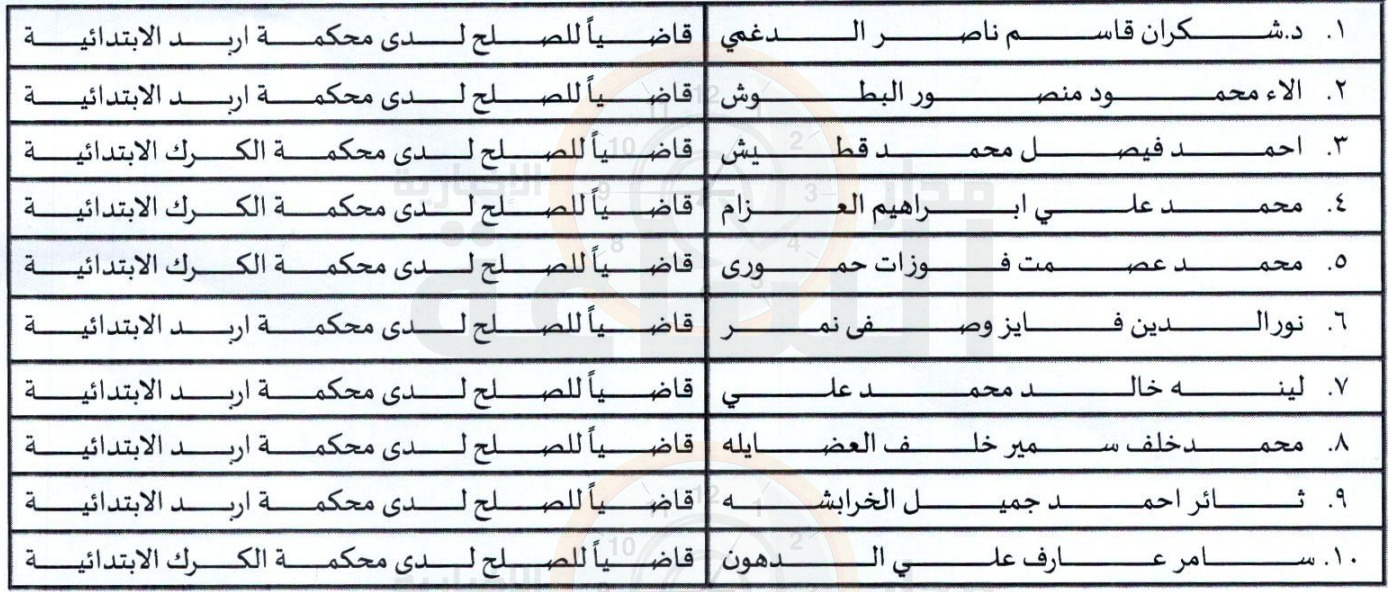 ١. د.شكران قاسم ناصر الدغمي قاضياً للصلح لدى محكمة اربد الابتدائية
٢. الاء محمود منصور البطوش قاضياً للصلح لدى محكمة اربد الابتدائية
٣. احمد فيصل محمد قطيش قاضياً للصلح لدى محكمة الكرك الابتدائية
٤. محمد علي ابراهيم العزام قاضياً للصلح لدى محكمة الكرك الابتدائية
٥. محمد عصمت فوزات حمورى قاضياً للصلح لدى محكمة الكرك الابتدائية
٦. نورالدين فايز وصفى نمر قاضياً للصلح لدى محكمة اربد الابتدائية
٧. لينه خالد محمد علي قاضياً للصلح لدى محكمة اربد الابتدائية
٨. محمدخلف سمير خلف العضايله قاضياً للصلح لدى محكمة اربد الابتدائية
٩. ثائر احمد جميل الخرابشه قاضياً للصلح لدى محكمة اربد الابتدائية
١٠. سامر عارف علي الدهون قاضياً للصلح لدى محكمة الكرك الابتدائية
مدار الساعة الإخبارية